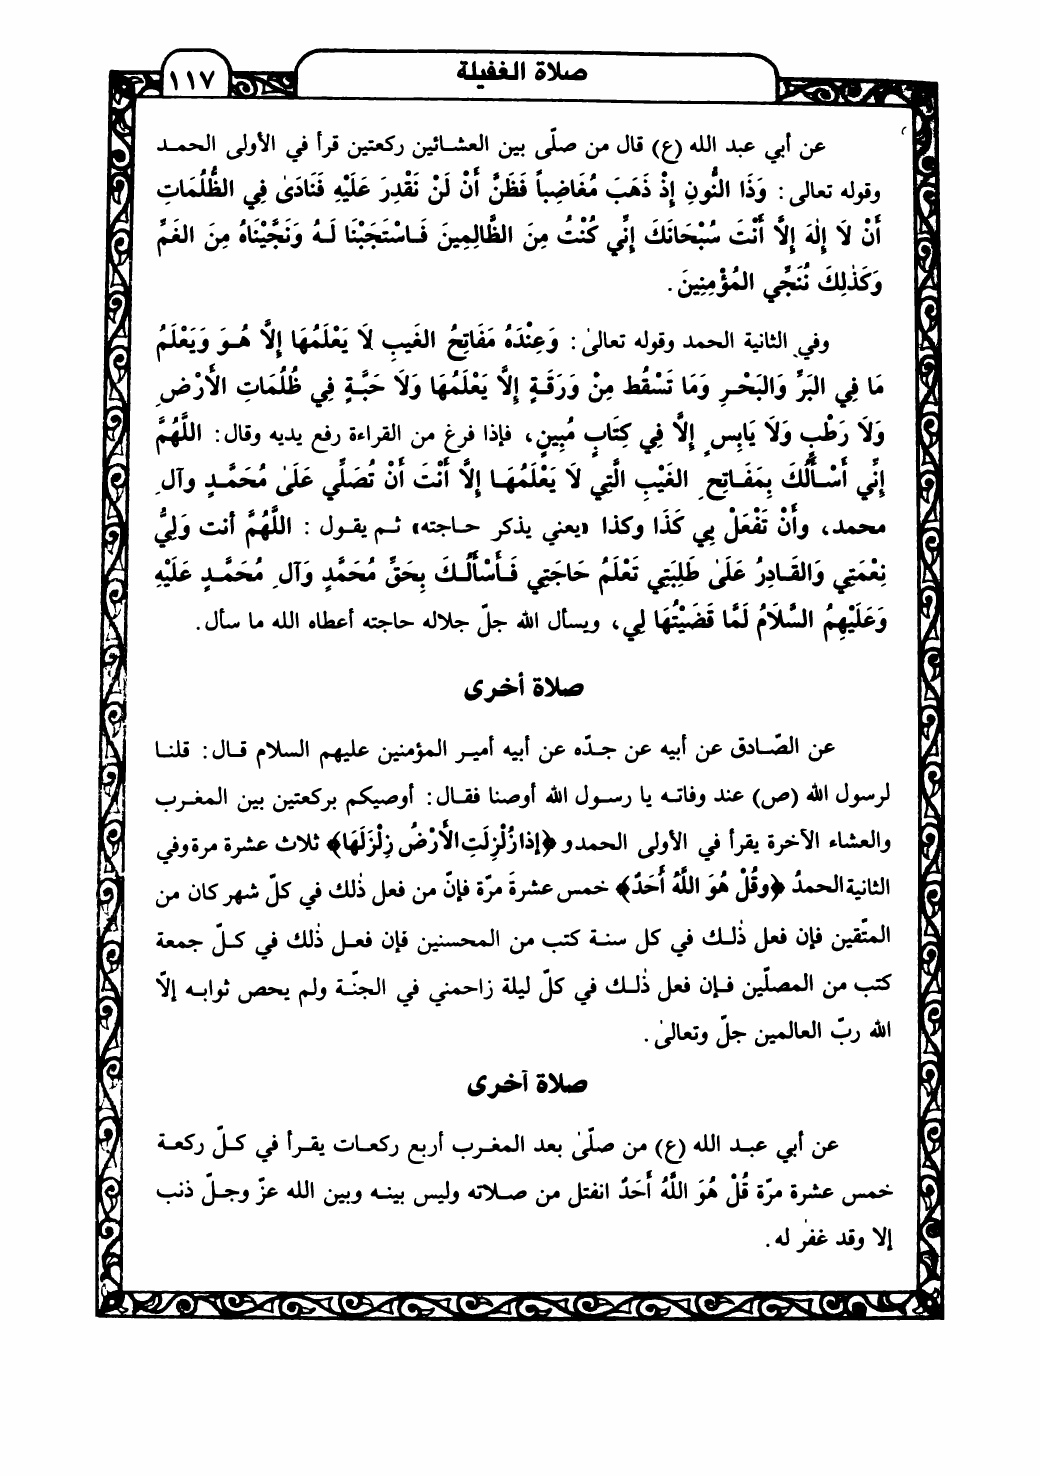 صلاة الغفيلة
١١٧
عن أبي عبد الله (ع) قال من صلّى بين العشائين ركعتين قرأ في الأولى الحمد
وقوله تعالى: وَذَا النُّونِ إِذْ ذَهَبَ مُغَاضِباً فَظَنَّ أَنْ لَنْ نَقْدِرَ عَلَيْهِ فَنَادَىٰ فِي الظُّلُمَاتِ
أَنْ لَا إِلٰهَ إِلَّا أَنْتَ سُبْحَانَكَ إِنِّي كُنْتُ مِنَ الظَّالِمِينَ فَاسْتَجَبْنَا لَهُ وَنَجَّيْنَاهُ مِنَ الغَمِّ
وَكَذٰلِكَ نُنَجِّي المُؤْمِنِينَ.
وفي الثانية الحمد وقوله تعالىٰ: وَعِنْدَهُ مَفَاتِحُ الغَيبِ لَا يَعْلَمُهَا إِلَّا هُوَ وَيَعْلَمُ
مَا فِي البَرِّ وَالبَحْرِ وَمَا تَسْقُط مِنْ وَرَقَةٍ إِلَّا يَعْلَمُهَا وَلَا حَبَّةٍ فِي ظُلُمَاتِ الأَرْضِ
وَلَا رَطْبٍ وَلَا يَابِسٍ إِلَّا فِي كِتَابٍ مُبِينٍ، فإذا فرغ من القراءة رفع يديه وقال: اللَّهُمَّ
إِنِّي أَسْأَلُكَ بِمَفَاتِحِ الغَيْبِ الَّتِي لَا يَعْلَمُهَا إِلَّا أَنْتَ أَنْ تُصَلِّي عَلَىٰ مُحَمَّدٍ وآلِ
محمد، وأَنْ تَفْعَلْ بِي كَذَا وكذا «يعني يذكر حاجته» ثم يقول: اللَّهُمَّ أنت وَلِيُّ
نِعْمَتِي وَالقَادِرُ عَلَىٰ طَلِبَتِي تَعْلَمُ حَاجَتِي فَأَسْأَلُكَ بِحَقِّ مُحَمَّدٍ وَآلِ مُحَمَّدٍ عَلَيْهِ
وَعَلَيْهِمُ السَّلَامُ لَمَّا قَضَيْتُهَا لِي، ويسأل الله جلّ جلاله حاجته أعطاه الله ما سأل.
صلاة أخرى
عن الصّادق عن أبيه عن جدّه عن أبيه أمير المؤمنين عليهم السلام قال: قلنا
لرسول الله (ص) عند وفاته يا رسول الله أوصنا فقال: أوصيكم بركعتين بين المغرب
والعشاء الآخرة يقرأ في الأولى الحمد و ﴿إذا زُلْزِلَتِ الأَرْضُ زِلْزَلَهَا﴾ ثلاث عشرة مرة وفي
الثانية الحمدُ ﴿وقُلْ هُوَ اللَّهُ أَحَدٌ﴾ خمس عشرةَ مرّة فإنّ من فعل ذٰلك في كلّ شهر كان من
المتّقين فإن فعل ذٰلك في كل سنة كتب من المحسنين فإن فعل ذٰلك في كلّ جمعة
كتب من المصلّين فإن فعل ذٰلك في كلّ ليلة زاحمني في الجنّة ولم يحص ثوابه إلّا
الله ربّ العالمين جلّ وتعالىٰ.
صلاة آخرى
عن أبي عبد الله (ع) من صلّىٰ بعد المغرب أربع ركعات يقرأ في كلّ ركعة
خمس عشرة مرّة قُلْ هُوَ اللَّهُ أَحَدٌ انفتل من صلاته وليس بينه وبين الله عزّ وجلّ ذنب
إلا وقد غفر له.